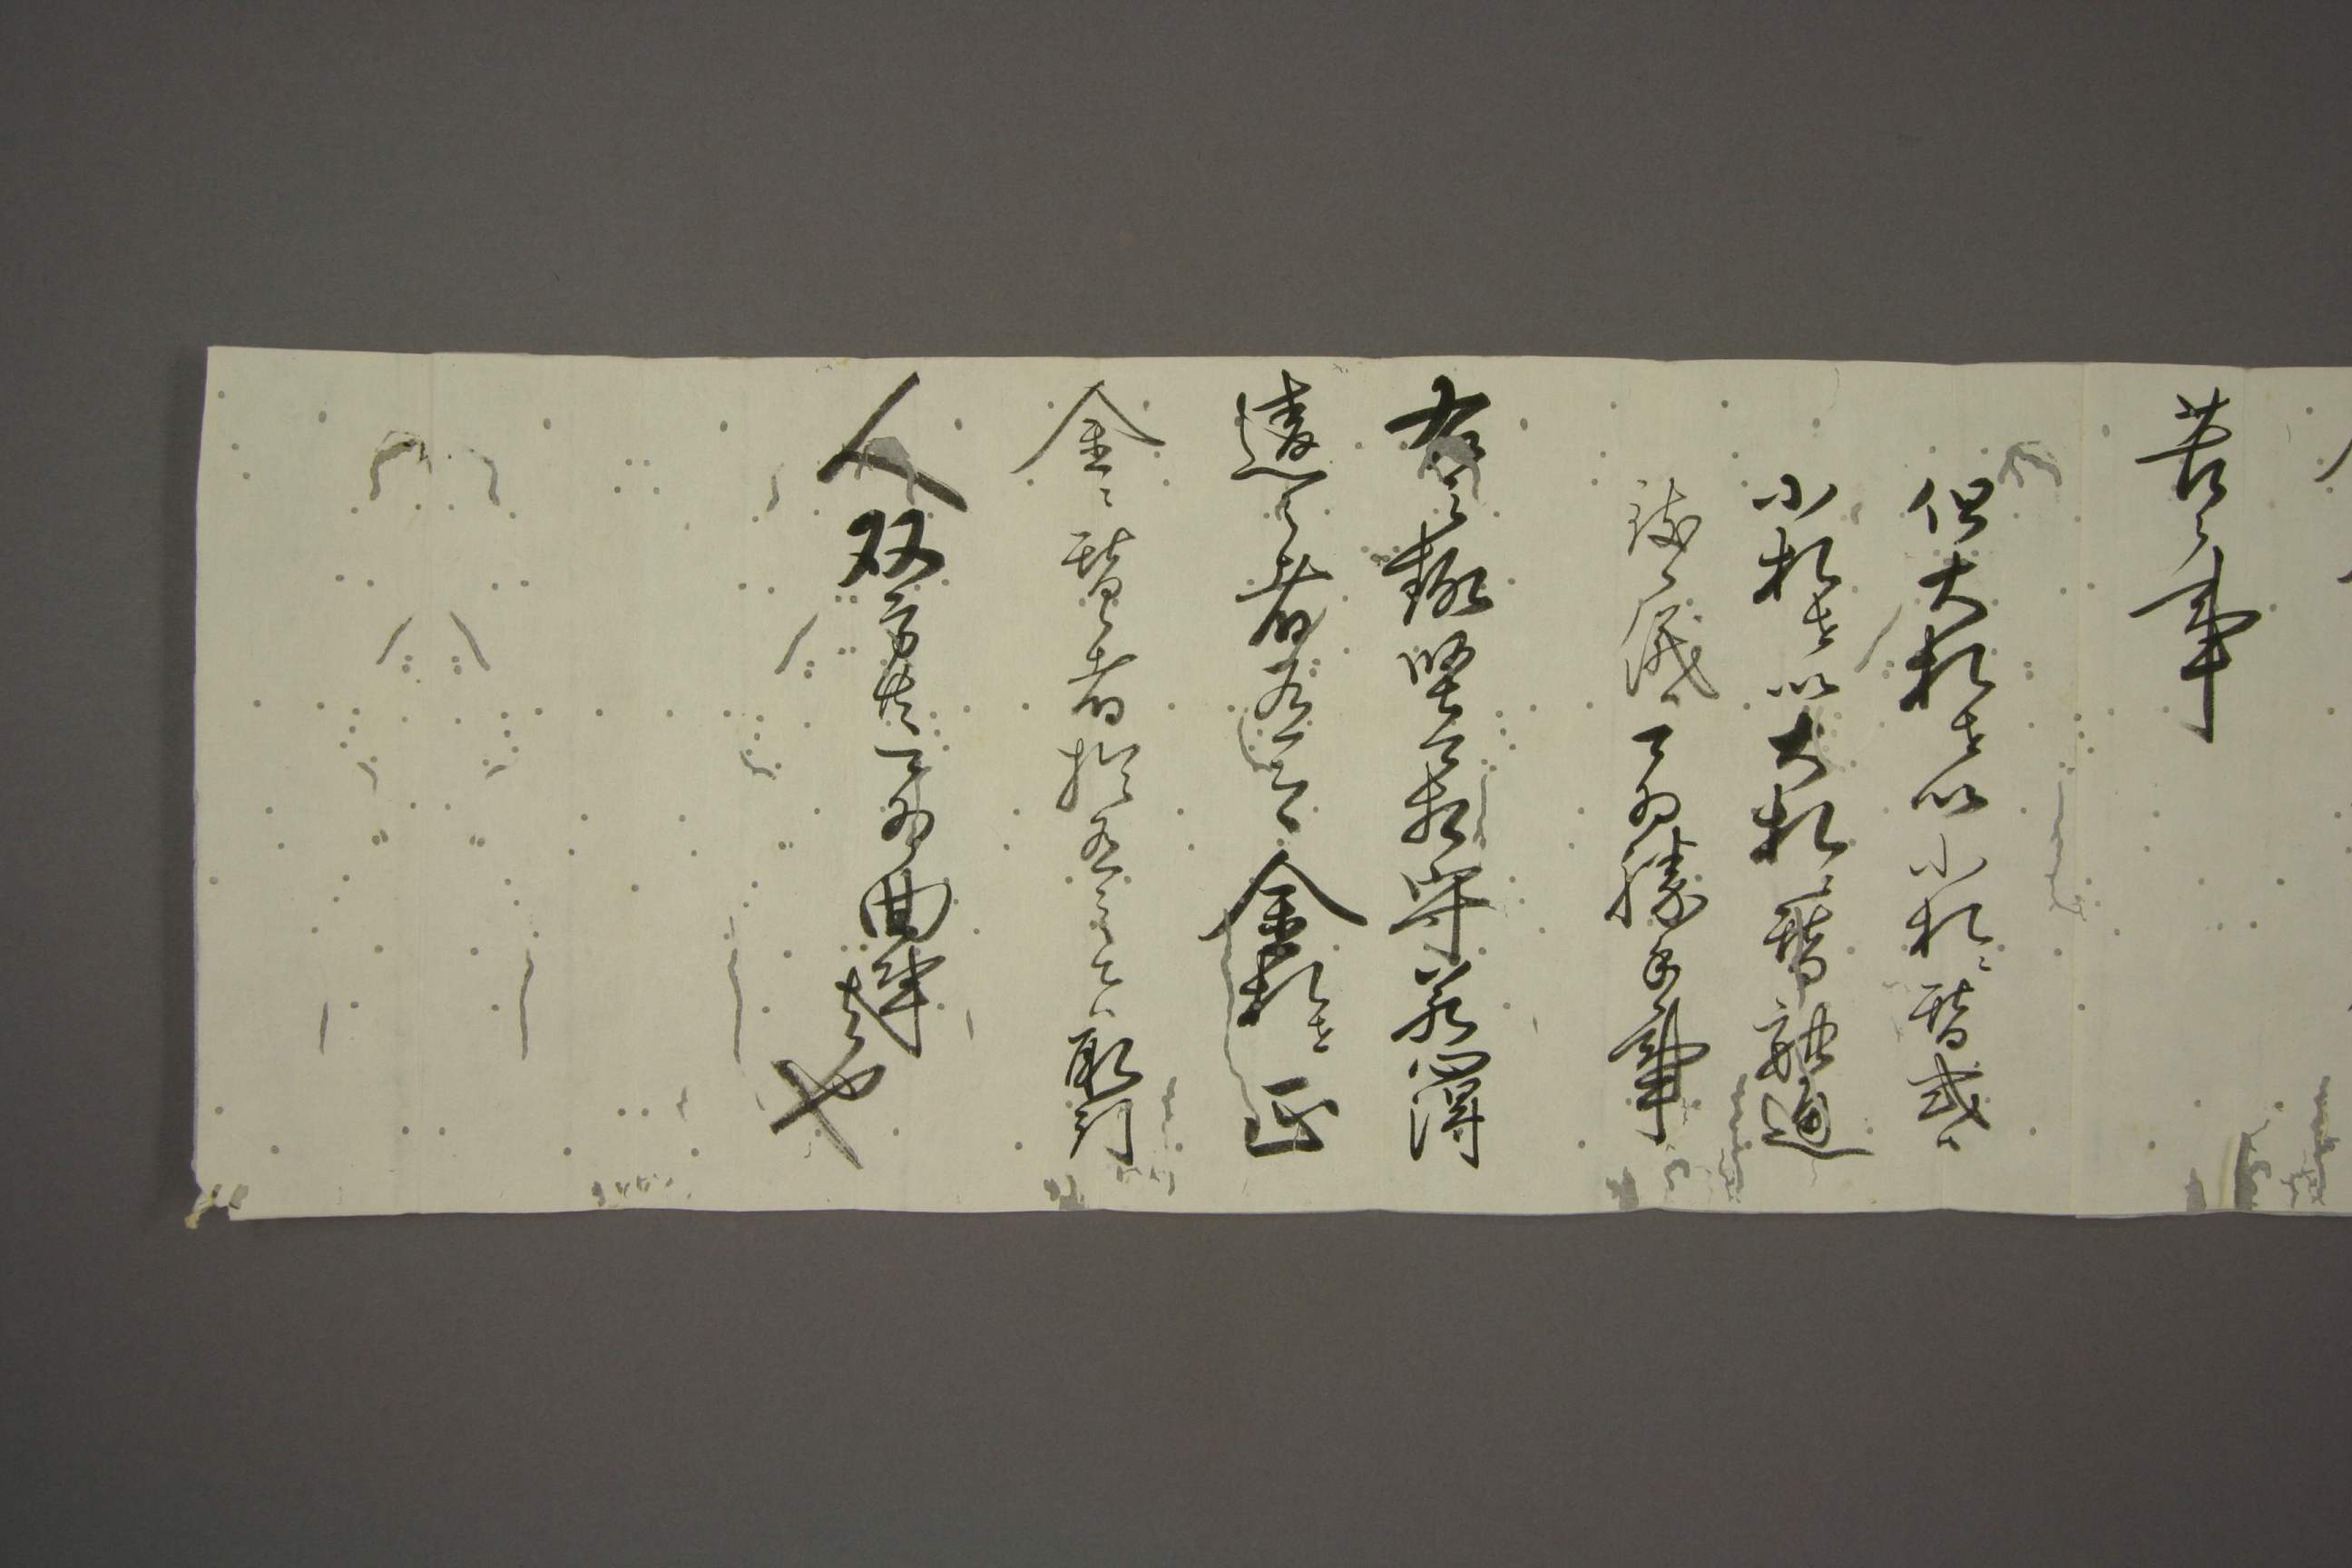 苦之事
但大札を以小札ニ替或ハ
小札を以大札ニ替融通
致之儀ハ可為勝手事
右之趣堅可相守若心得
違之者有之金札を正
金ニ替候者於有之ハ取引
人双方共可為曲事者也